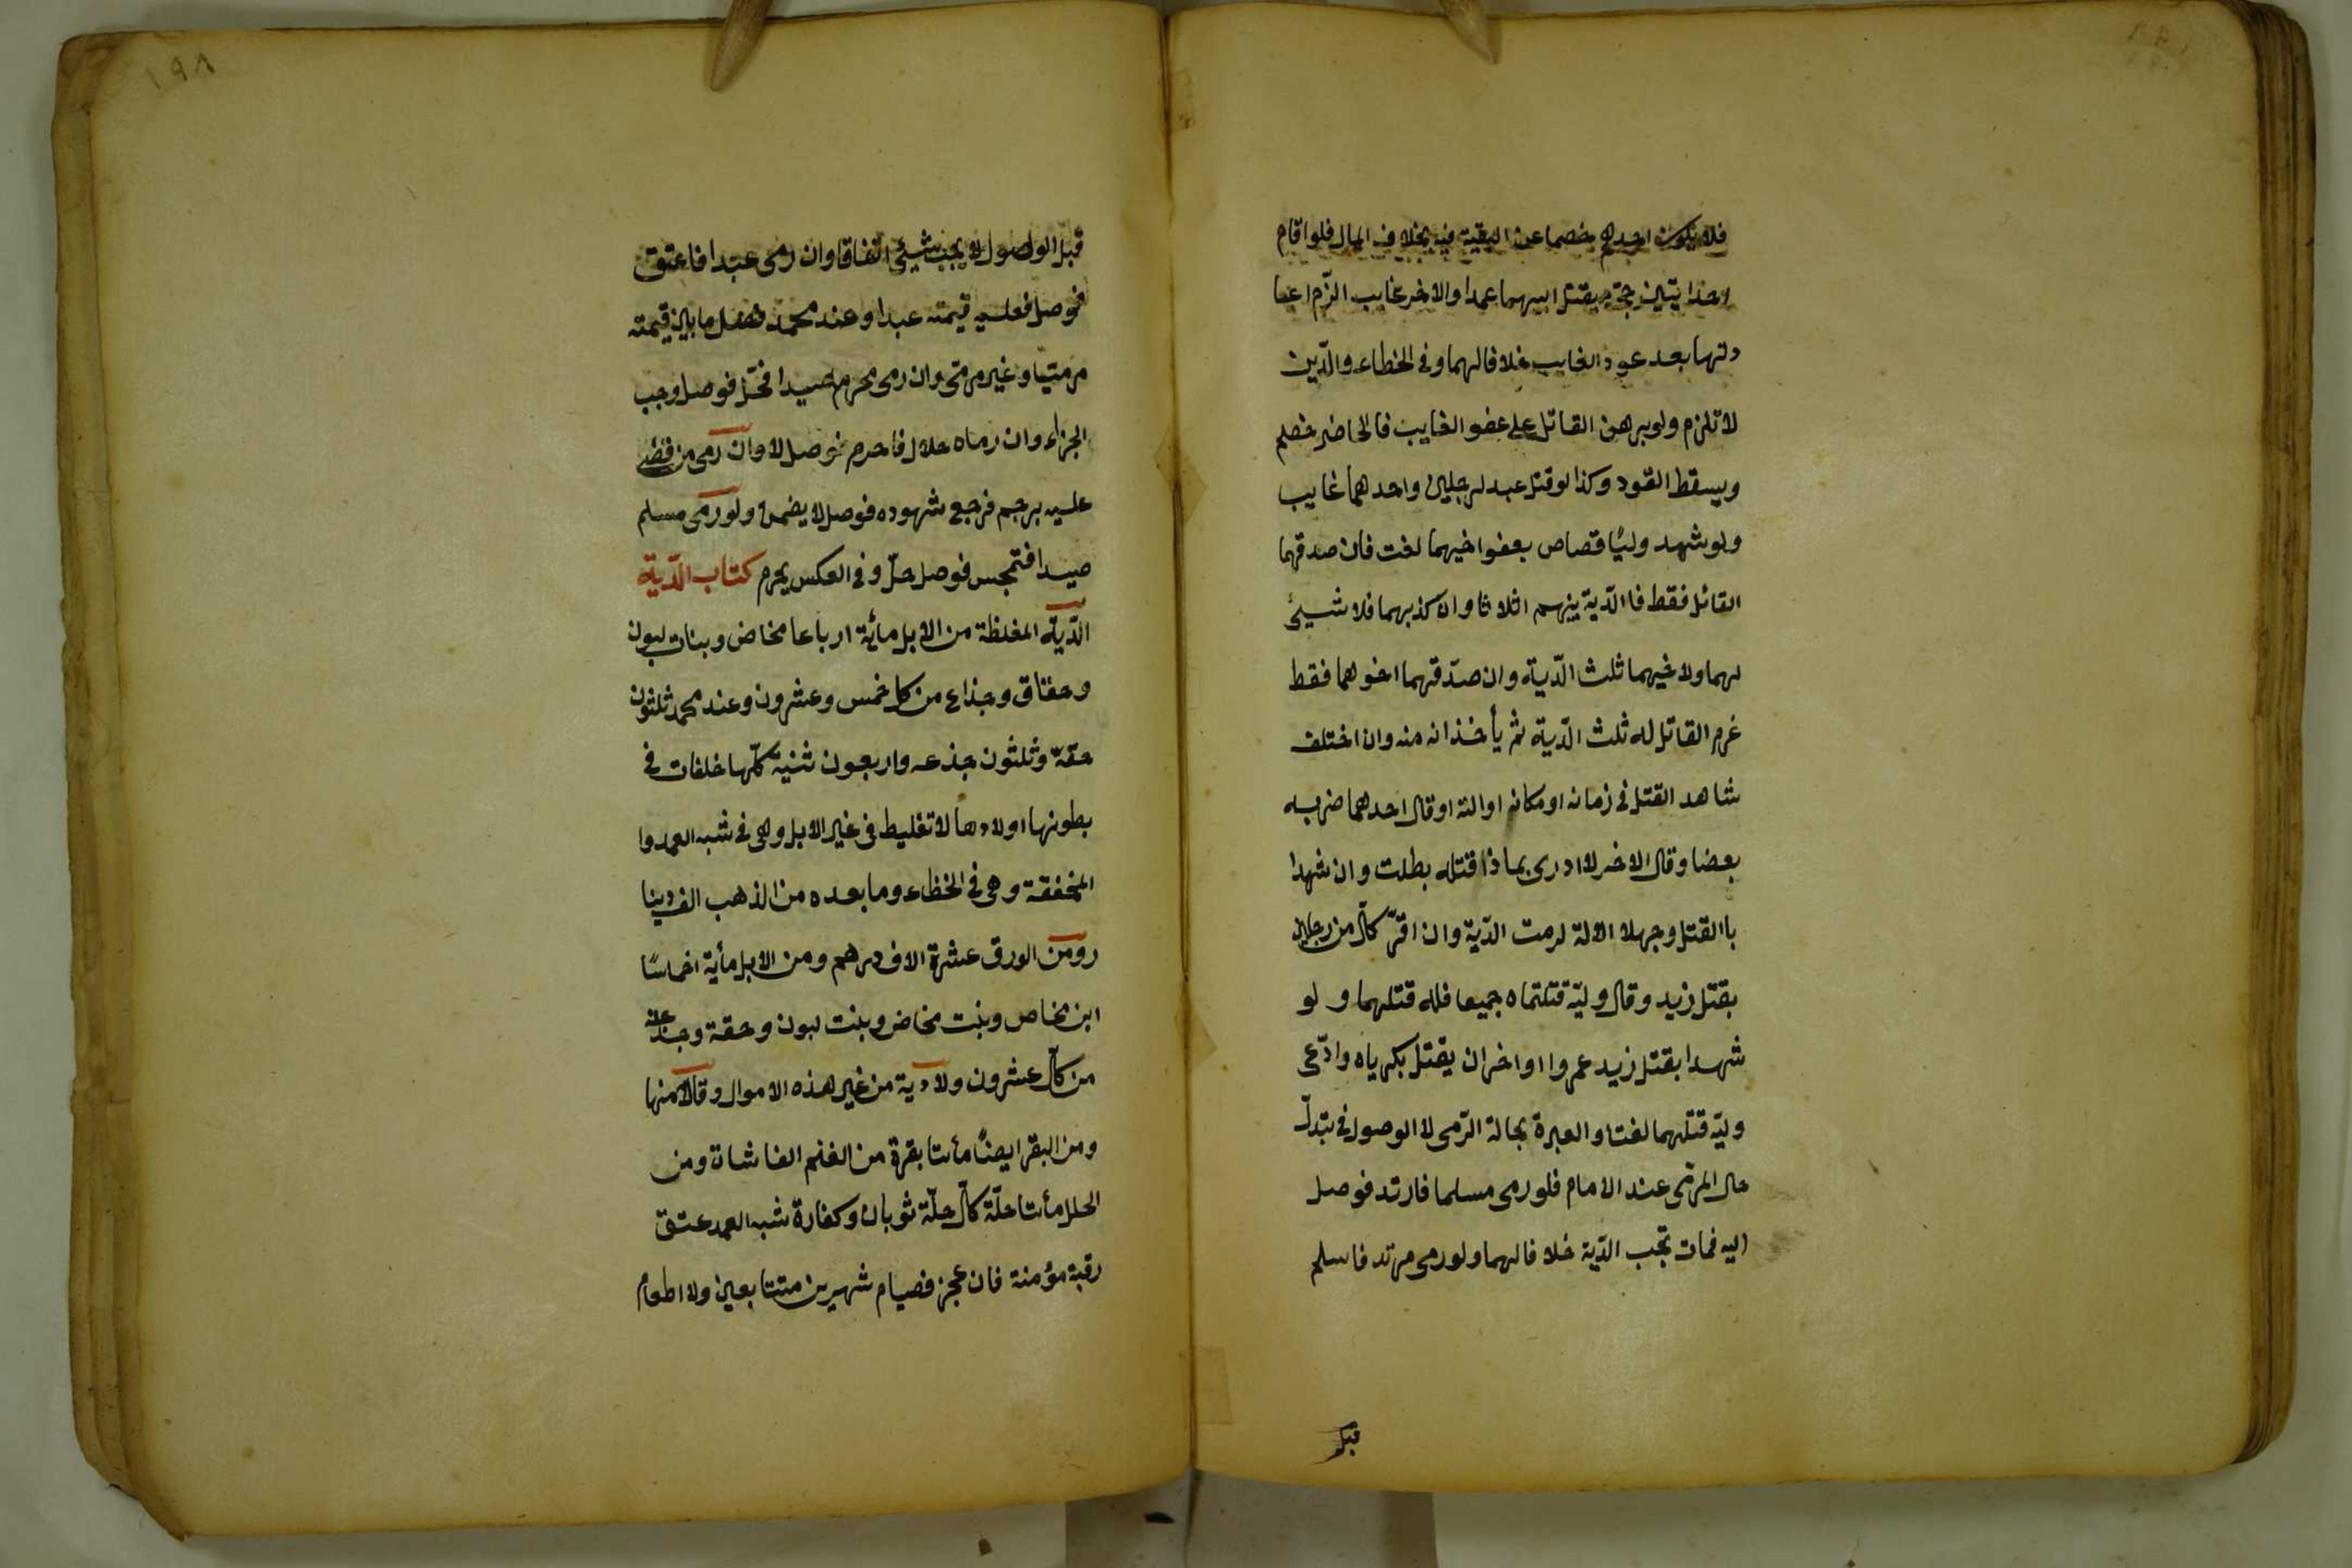 فلا يكون احدهم خصما عن البقية فيه بخلاف المال فلو اقام
احد ابنين حجة بقتل ابيهما عمدا والاخر غايب الزم اعا
دتها بعد عود الغايب خلافا لهما وفى الخطاء والدّين
لا تلزم ولو برهن القاتل على عفو الغايب فالحاضر خصم
ويسقط القود وكذا لو قتل عبد لرجلين واحدهما غايب
ولو شهد وليّا قصاص بعفو اخيهما لغت فان صدقهما
القاتل فقط فا الدّية بينهم اثلاثا وان كذبهما فلا شيئ
لهما ولاخيهما ثلث الدّية وان صدّقهما اخوهما فقط
غرم القاتل له ثلث الدّية ثم يأخذانه منه وان اختلف
شاهد القتل فى زمانه او مكانه او الته او قال احدهما ضربه
بعصا وقال الاخر لا ادرى بماذا قتله بطلت وان شهدا
باالقتل وجهلا الالة لزمت الدّية وان اقرّ كلّ من رجلين
بقتل زيد وقال وليّه قتلتماه جميعا فله قتلهما و لو
شهدا بقتل زيد عمروا واخران بقتل بكر ياه وادّعى
وليّه قتلهما لغتا والعبرة بحالة الرّمى لا الوصول فى تبدلّ
حال المرمّى عند الامام فلو رمى مسلما فارتد فوصل
اليه فمات تجب الدّية خلافا لهما ولو رمى مرتد فاسلم
قبل
١٩٨
قبل الوصول لا يجب شيئ اتفاقا وان رمى عبدا فاعتق
فوصل فعليه قيمته عبدا وعند محمد فضل ما بين قيمته
مرميّا وغير مرمّى وان رمى محرم صيدا فحلّ فوصل وجب
الجزاء وان رماه حلال فاحرم فوصل لا وان رمى من قضى
عليه برجم فرجع شهوده فوصل لا يضمن ولو رمى مسلم
صيدا فتمجس فوصل حلّ وفى العكس يحرم كتاب الدّية
الدّية المغلظة من الابل مائة ارباعا مخاض وبنات لبون
وحقاق وجذاع من كل خمس وعشرون وعند محمد ثلثون
حقّة وثلثون جذعه واربعون ثنية كلّها خلفات فى
بطونها اولادها لا تغليط فى غير الابل وهى فى شبه العمد وا
المخففة وهى فى الخطاء وما بعده من الذهب الف دينا
رومن الورق عشرة الاف درهم ومن الابل مأية اخماسًا
ابن مخاص وبنت مخاض وبنت لبون وحقة وجذعة
من كلّ عشرون ولا دية من غير هذه الاموال وقالا منها
ومن البقر ايضًا مأتا بقرة من الغنم الفا شات ومن
الحلل مأتا حلّة كلّ حلّة ثوبان وكفارة شبه العمد عتق
رقبة مؤمنة فان عجز فصيام شهرين متتابعين ولا اطعام